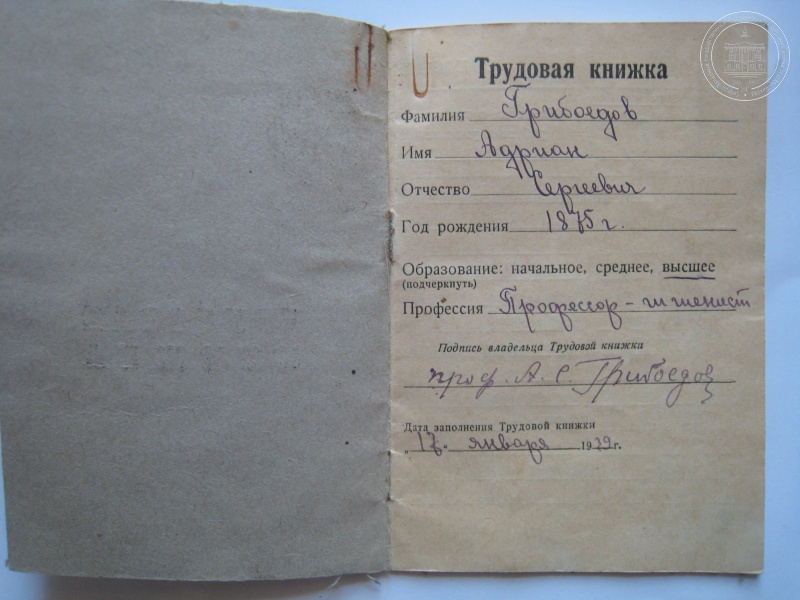 Трудовая книжка
Фамилия Грибоедов
Имя Адриан
Отчество Сергеевич
Год рождения 1875 г.
Образование: начальное, среднее, высшее
(подчеркнуть)
Профессия Профессор - гигиенист
Подпись владельца Трудовой книжки
проф. А. С. Грибоедов
Дата заполнения Трудовой книжки
„17" января 1939 г.